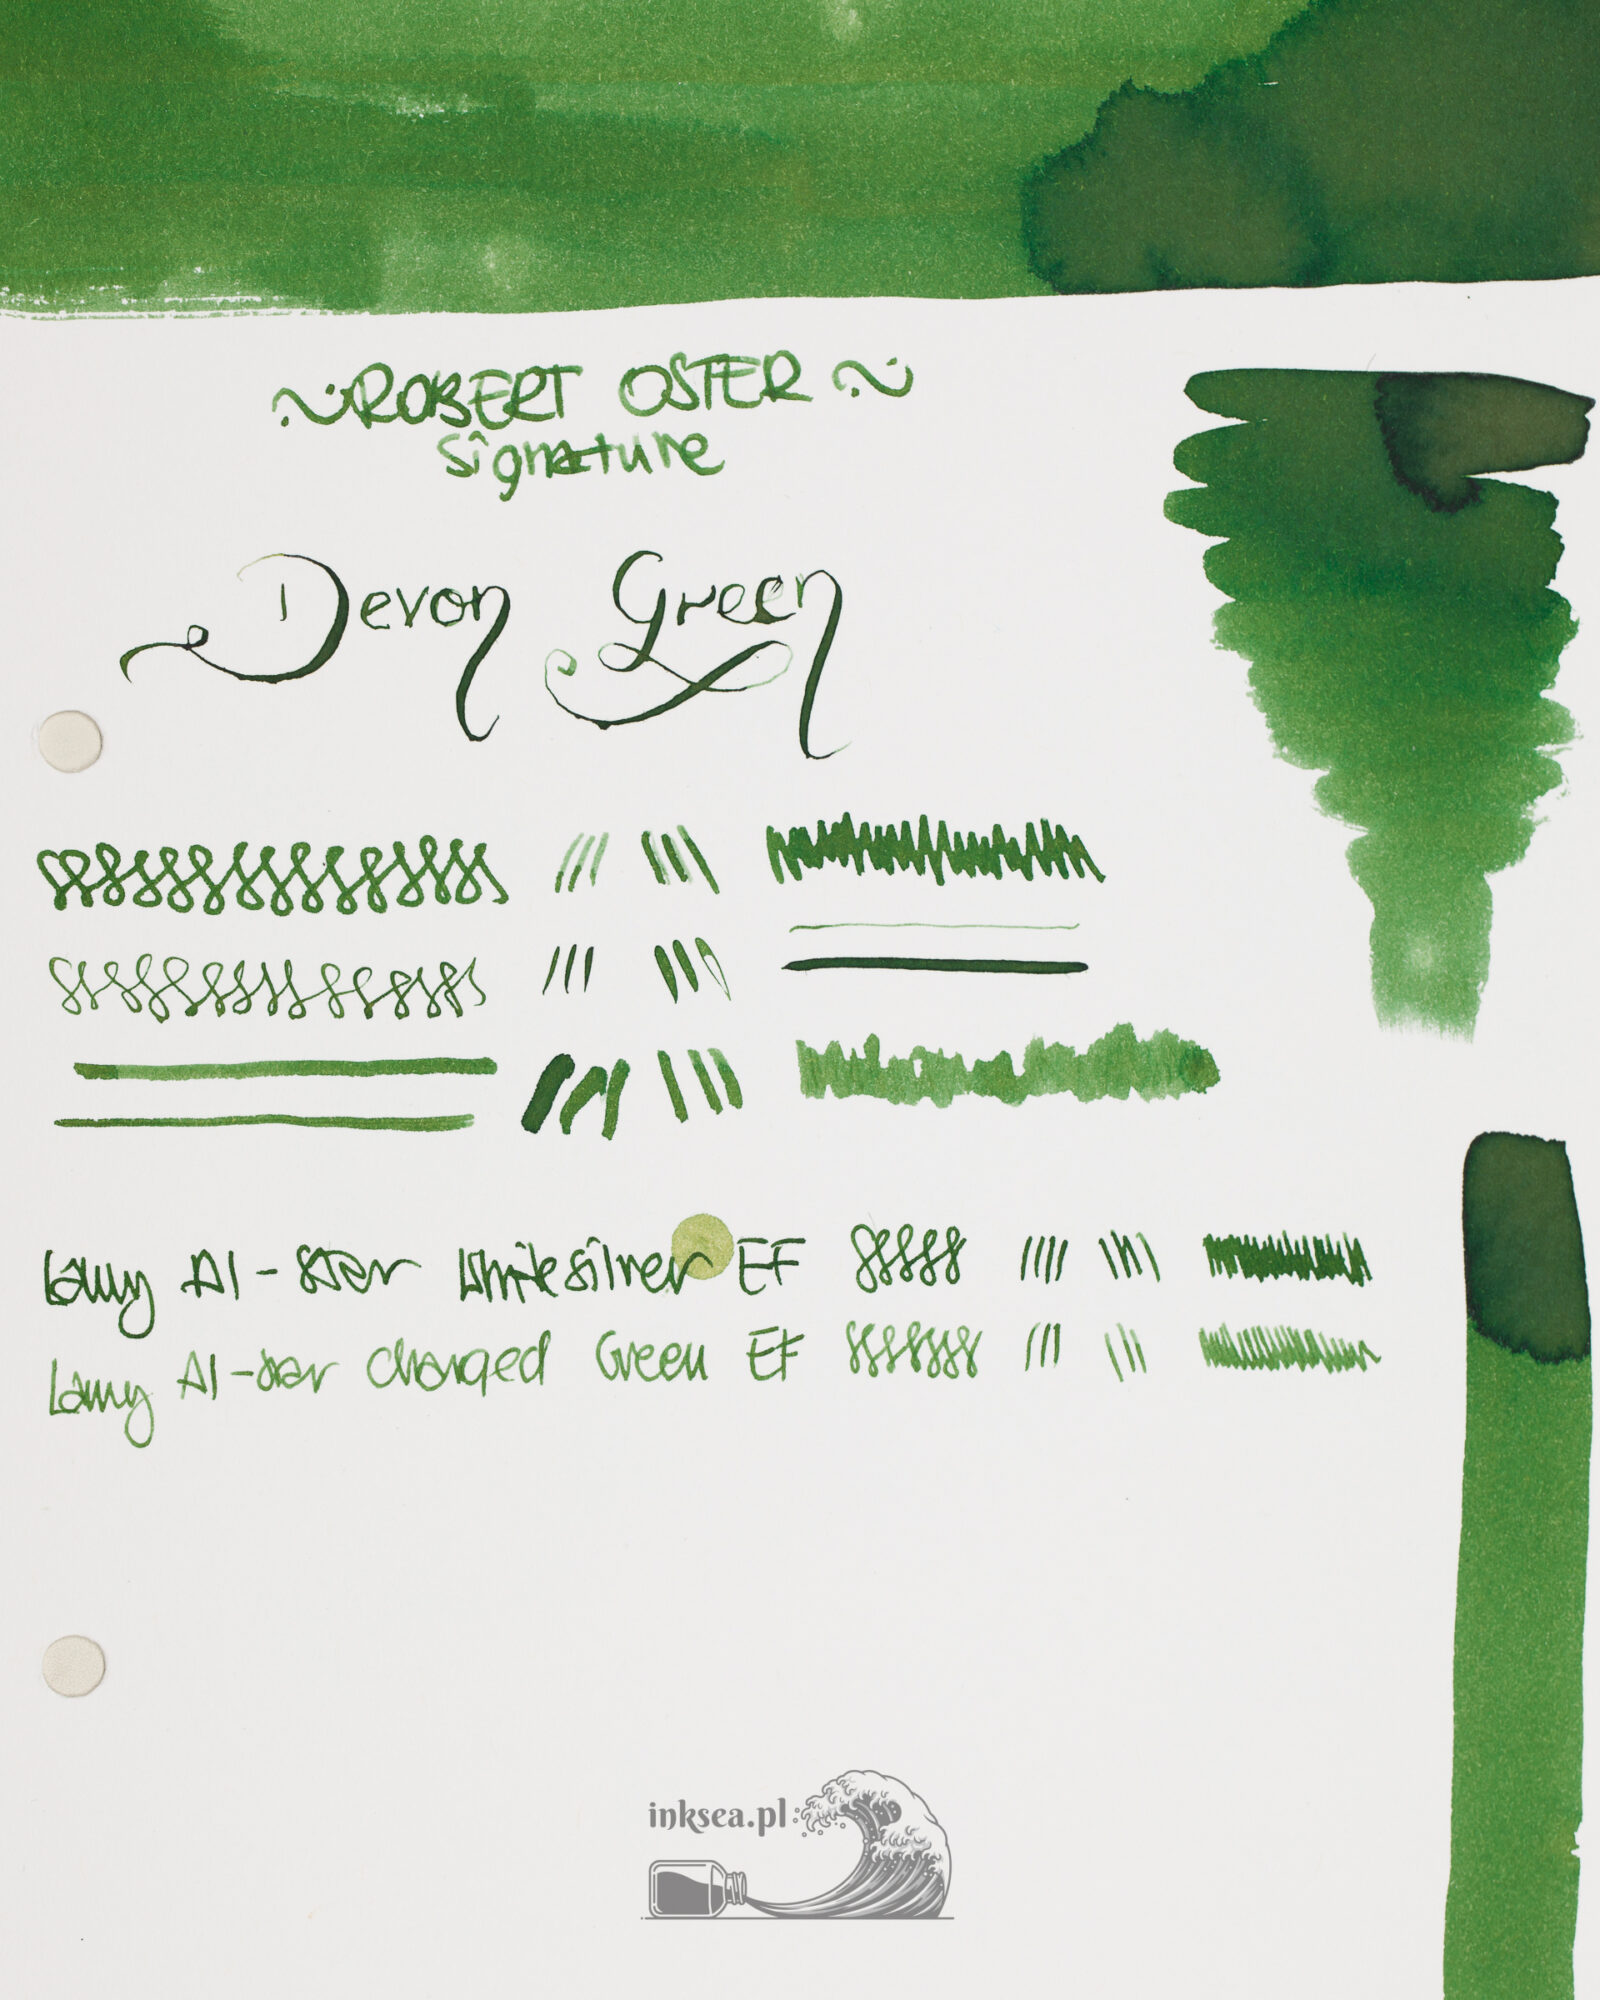 ~ROBERT OSTER~
Signature
Devon Green
Lamy Al-star Whitesilver EF
Lamy Al-star Charged Green EF
inksea.pl